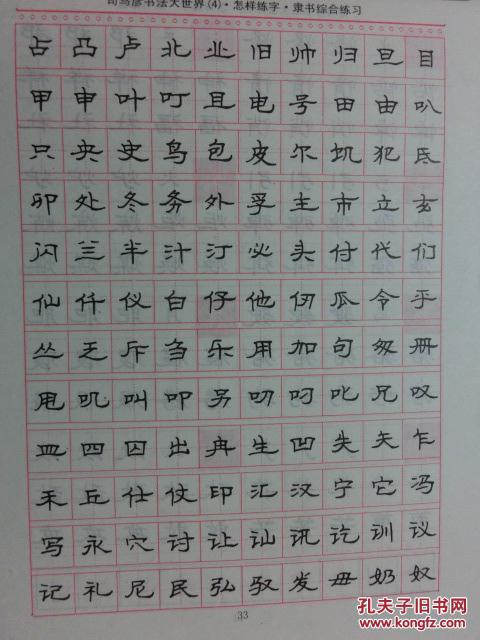 司马彦书法大世界(4)·怎样练字·隶书综合练习
占凸卢北业旧帅归旦目
甲申叶叮且电号田由叭
只央史鸟包皮尔饥犯氐
卯处冬务外孚主市立玄
闪兰半汁汀必头付代们
仙仟仪白仔他仞瓜令乎
丛乏斥刍乐用加句匆册
甩叽叫叩另叨叼叱兄叹
皿四囚出冉生凹失矢乍
禾丘仕仗印汇汉宁它冯
写永穴讨让讪讯讫训议
记礼尼民弘驭发毋奶奴
33
孔夫子旧书网
www.kongfz.com